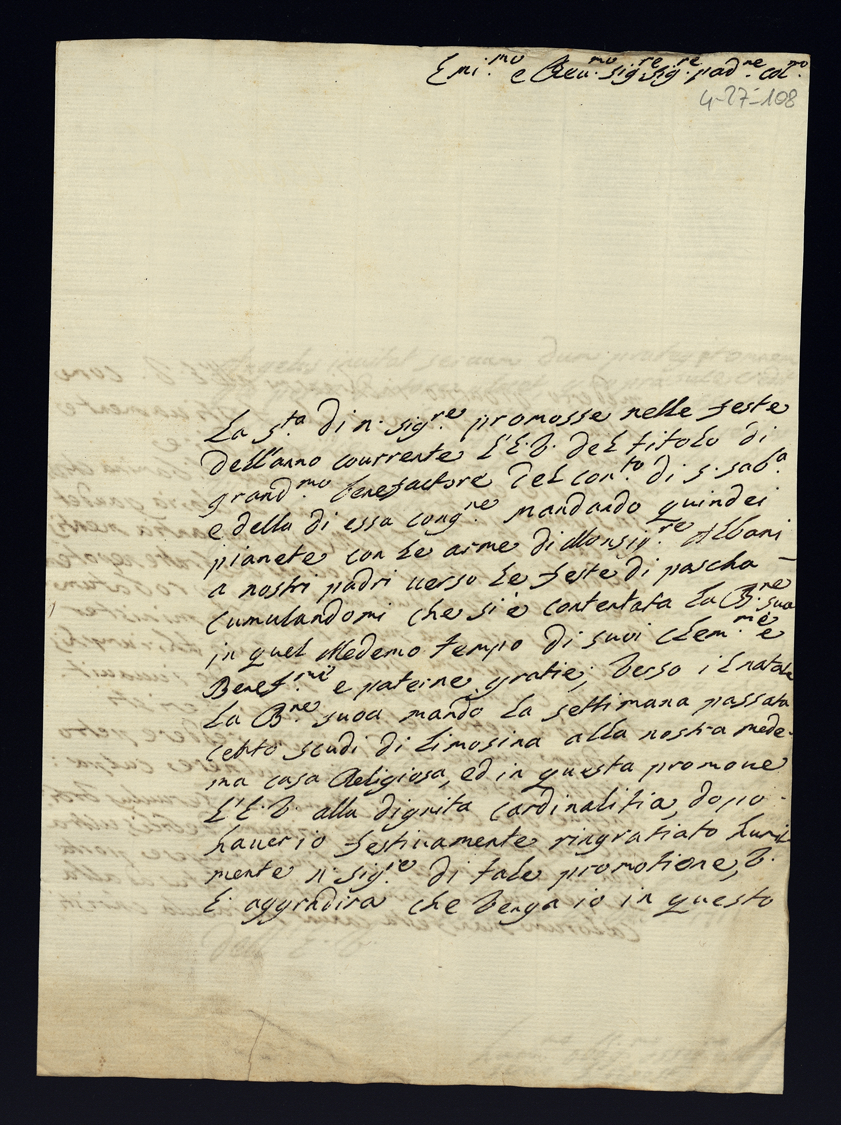 Emi.mo e Reu.mo sig.re sig.re pad.ne col.mo
4-27-108
La s.ta di n. sig.re promosse nelle feste
dell'anno courrente l'E.V. del titolo di
grand.mo benefactore del con.to di s. sab.a
e della di essa cong.ne mandando quindei
pianete con le arme di Monsig.re Albani
a nostri padri uerso le feste di pascha
cumulandomi che si è contentata la B.ne sua
in quel Medemo tempo di suoi clem.me e
Benef.me e paterne gratie; verso il natale
la B.ne sua mandò la settimana passata
cento scudi di limosina alla nostra mede-
ma casa Religiosa, ed in questa promoue
l'E.V. alla dignita Cardinalitia, dopo
hauer io festiuamente ringratiato humil
mente n. sig.re di tale promotione, V.
E. aggradira che venga io in questo